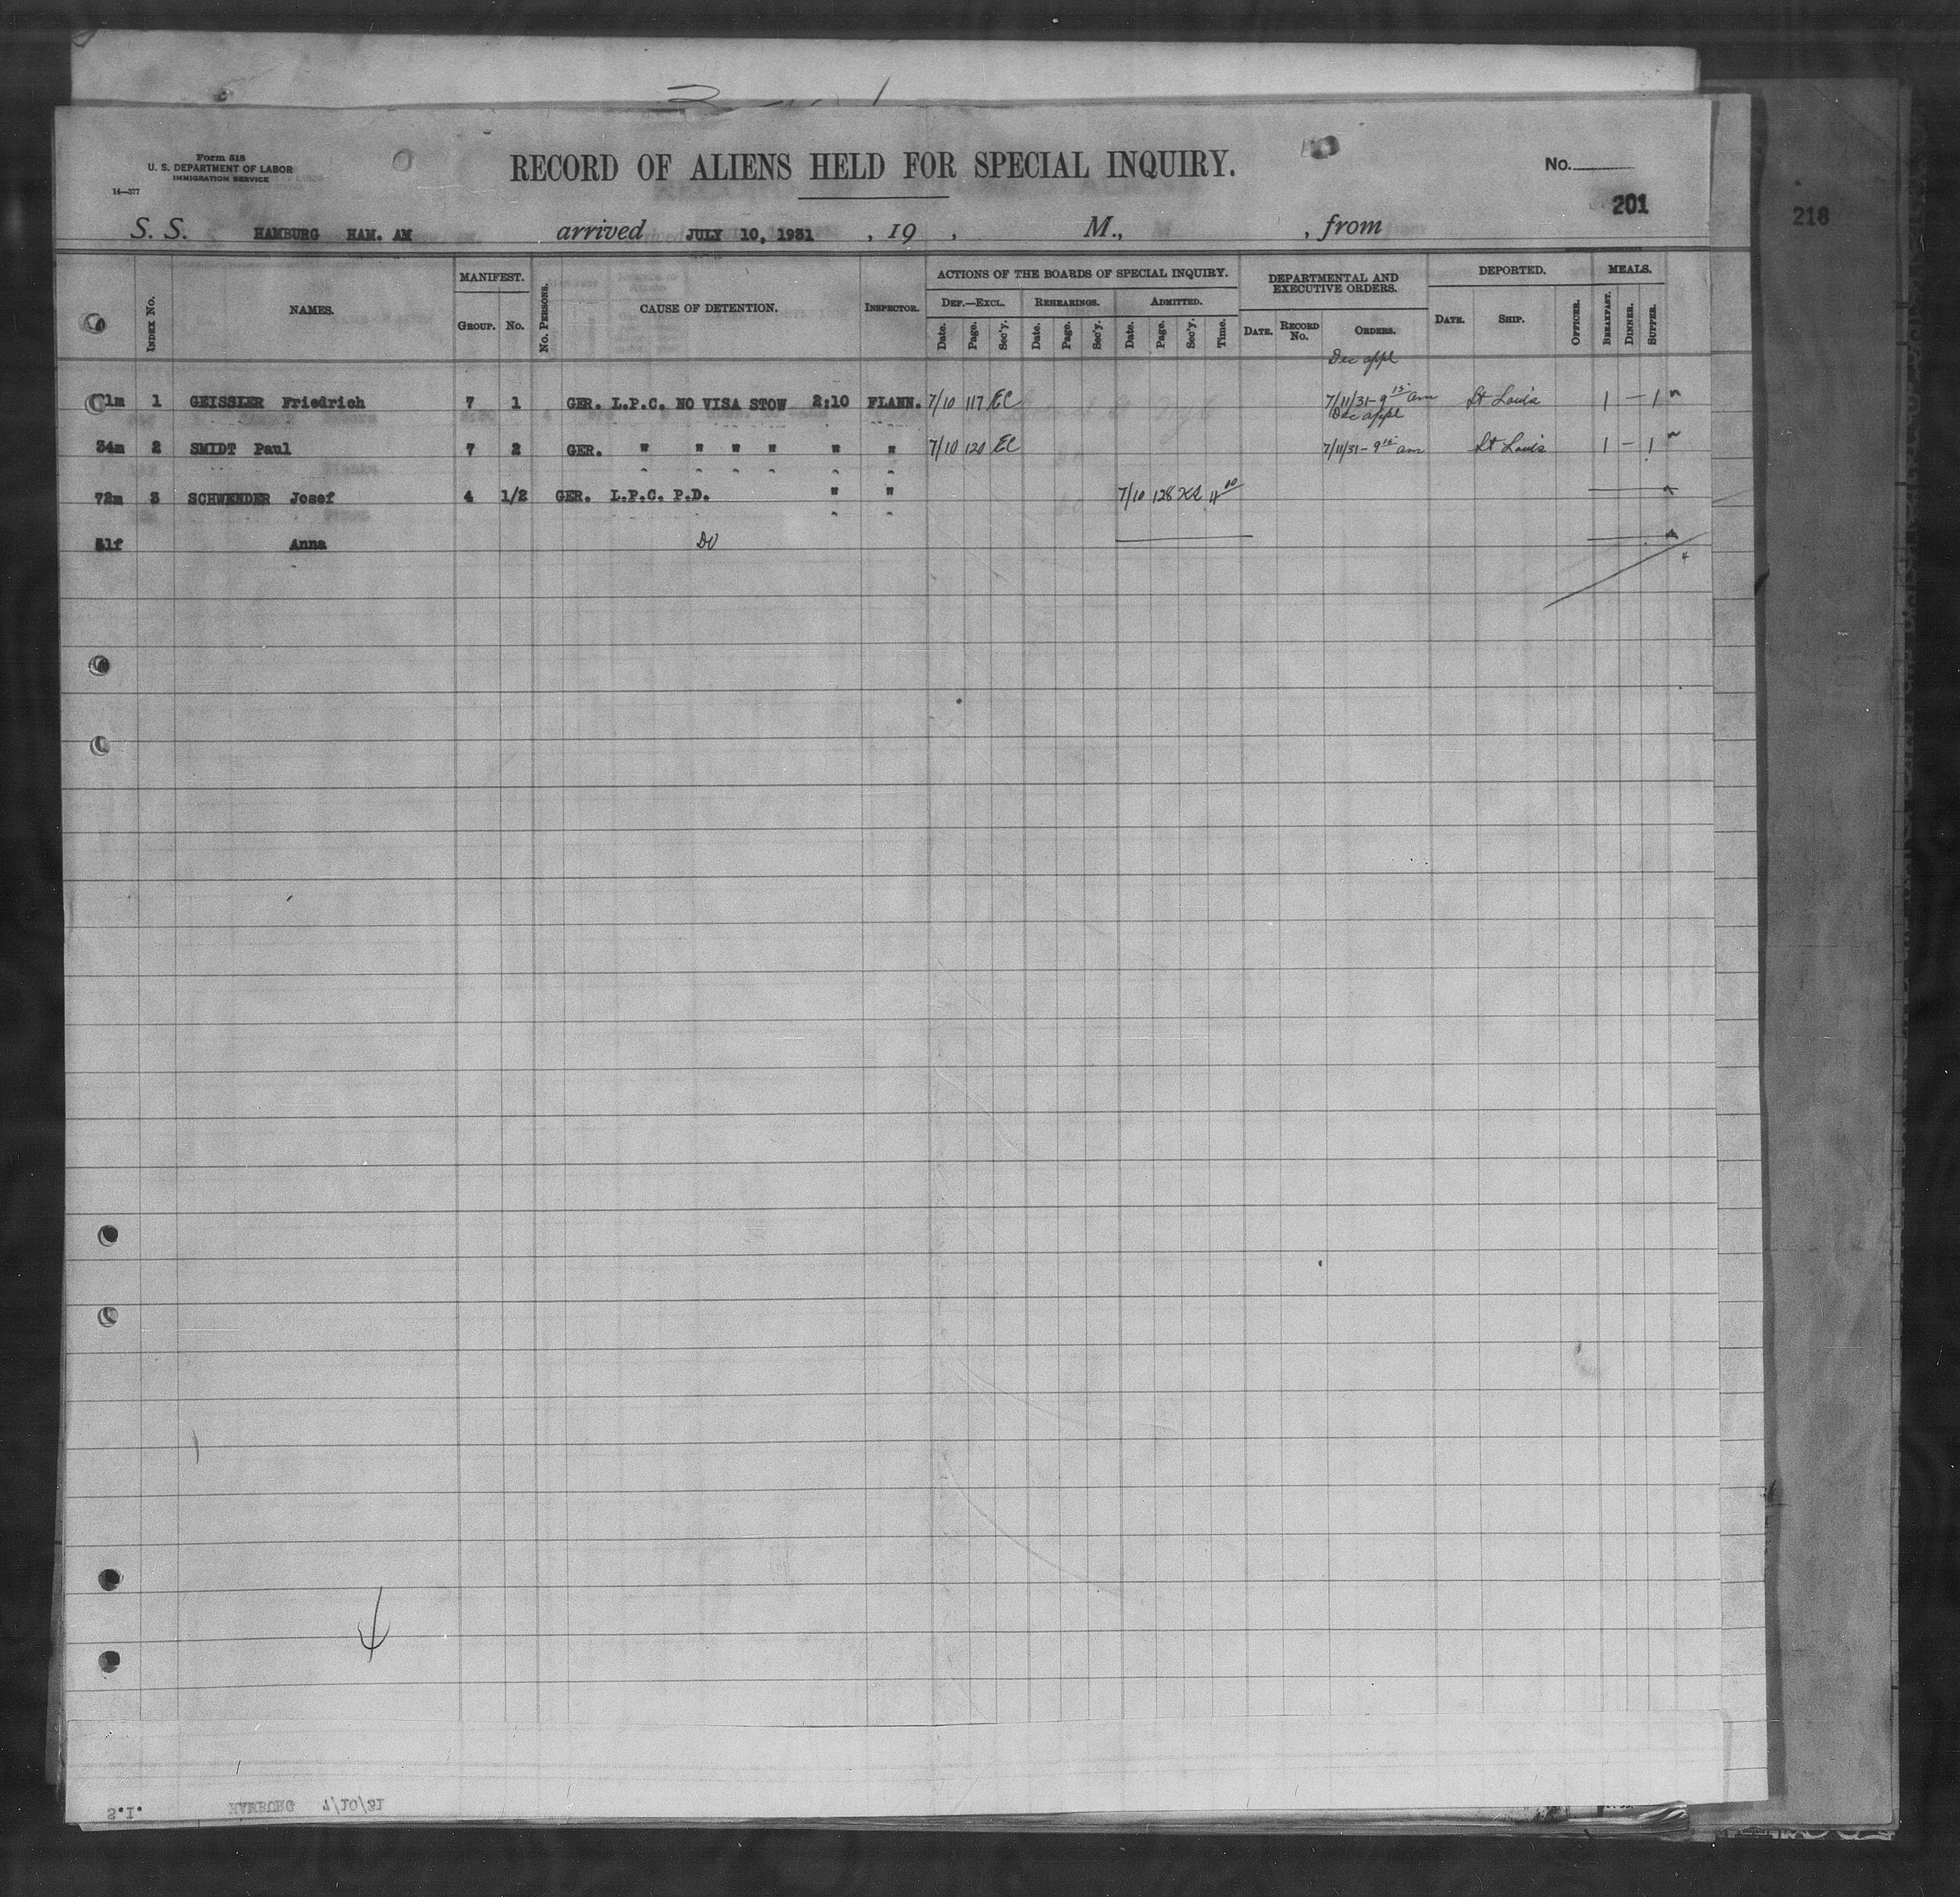 Form 518
U. S. DEPARTMENT OF LABOR
IMMIGRATION SERVICE
14—377
RECORD OF ALIENS HELD FOR SPECIAL INQUIRY.
No.
201
218
S. S. HAMBURG HAM. AM arrived JULY 10, 1931 , 19 , M., , from
INDEX No. NAMES. MANIFEST. GROUP. No. No. PERSONS. CAUSE OF DETENTION. INSPECTOR. ACTIONS OF THE BOARDS OF SPECIAL INQUIRY. DEF.—EXCL. Date. Page. Sec'y. REHEARINGS. Date. Page. Sec'y. ADMITTED. Date. Page. Sec'y. Time. DEPARTMENTAL AND EXECUTIVE ORDERS. DATE. RECORD No. ORDERS. DEPORTED. DATE. SHIP. OFFICER. MEALS. BREAKFAST. DINNER. SUPPER.
Dec appl
1m 1 GEISSLER Friedrich 7 1 GER. L.P.C. NO VISA STOW 2:10 FLANN. 7/10 117 EC 7/11/31 - 9 15 am St Louis 1 — 1
Dec appl
34m 2 SMIDT Paul 7 2 GER. " " " " " " 7/10 120 EC 7/11/31 - 9 15 am St Louis 1 — 1
72m 3 SCHWENDER Josef 4 1/2 GER. L.P.C. P.D. " " 7/10 128
51f Anna DO
S.I. HAMBURG 7/10/31